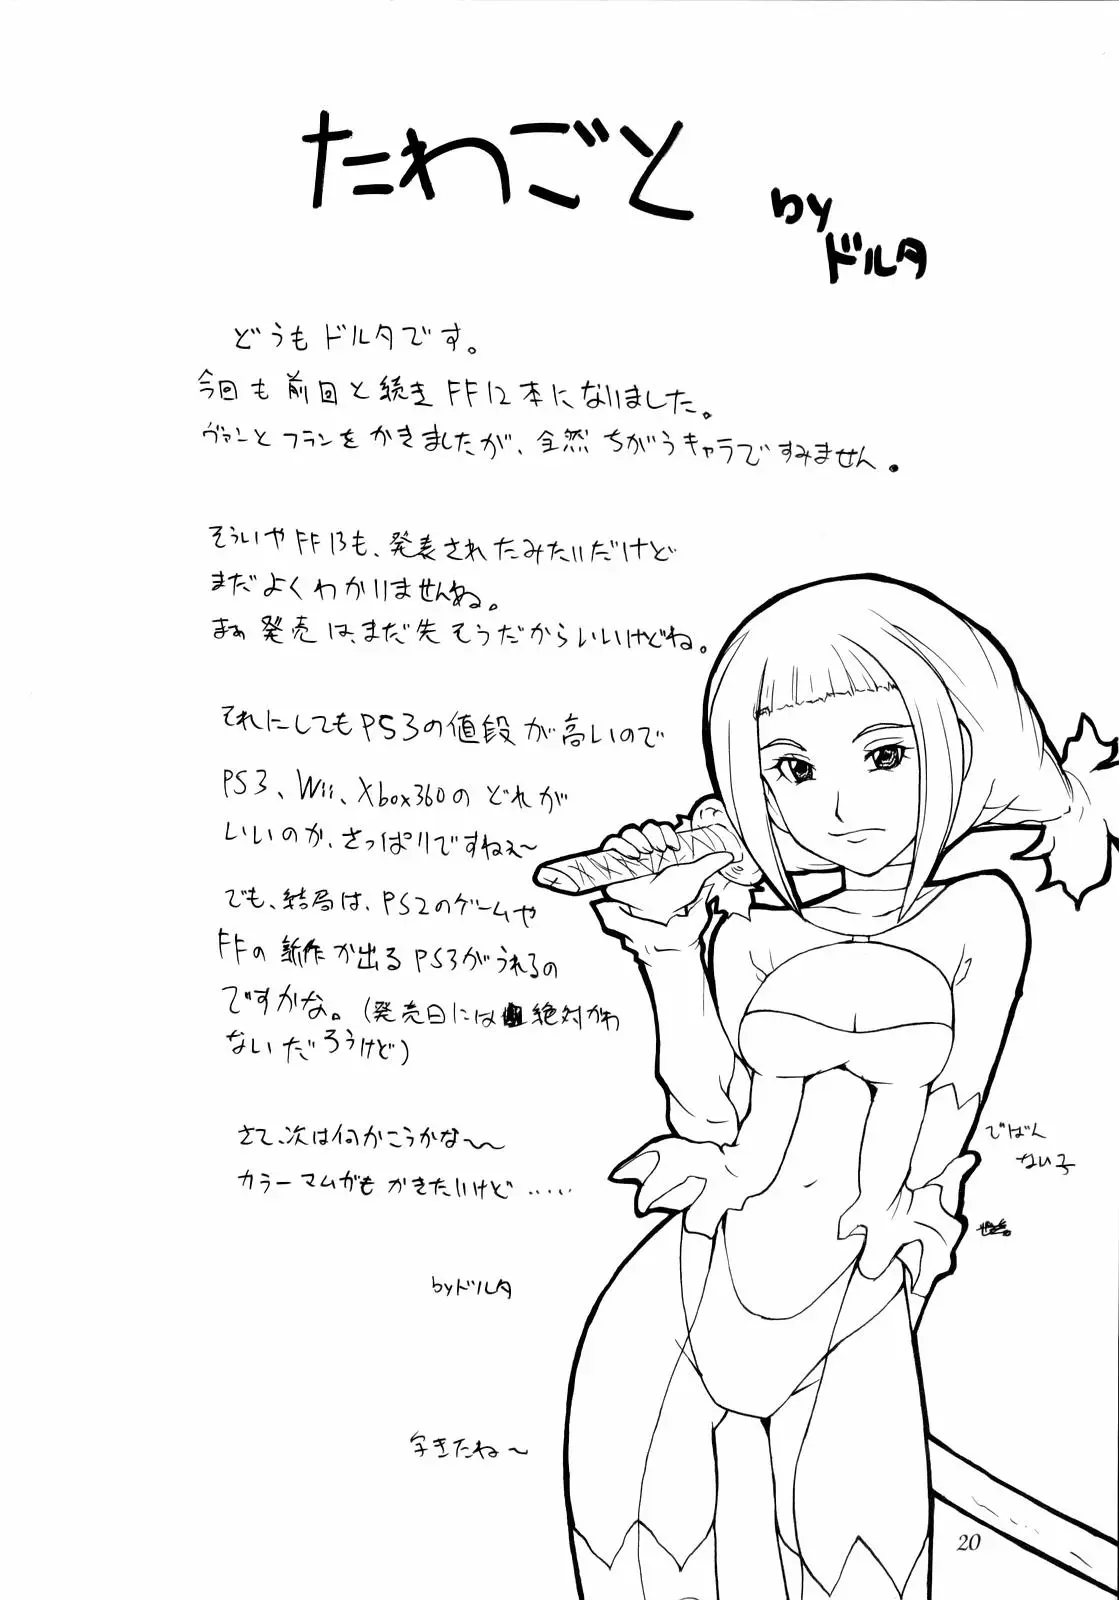 たわごと
by
ドルタ
どうもドルタです。
今回も前回と続きFF12本になりました。
ヴァンとフランをかきましたが、全然ちがうキャラですみません。
そういやFF13も、発表されたみたいだけど
まだよくわかりませんね。
まぁ発売は、まだ先そうだからいいけどね。
それにしてもPS3の値段が高いので
PS3、Wii、Xbox360のどれが
いいのか、さっぱりですねぇ〜
でも、結局は、PS2のゲームや
FFの新作が出るPS3がうれるの
ですかな。(発売日には絶対かわ
ないだろうけど)
さて、次は何かこうかな〜〜
カラーマンガもかきたいけど‥‥‥
byドルタ
でばん
ない子
字きたね〜
20